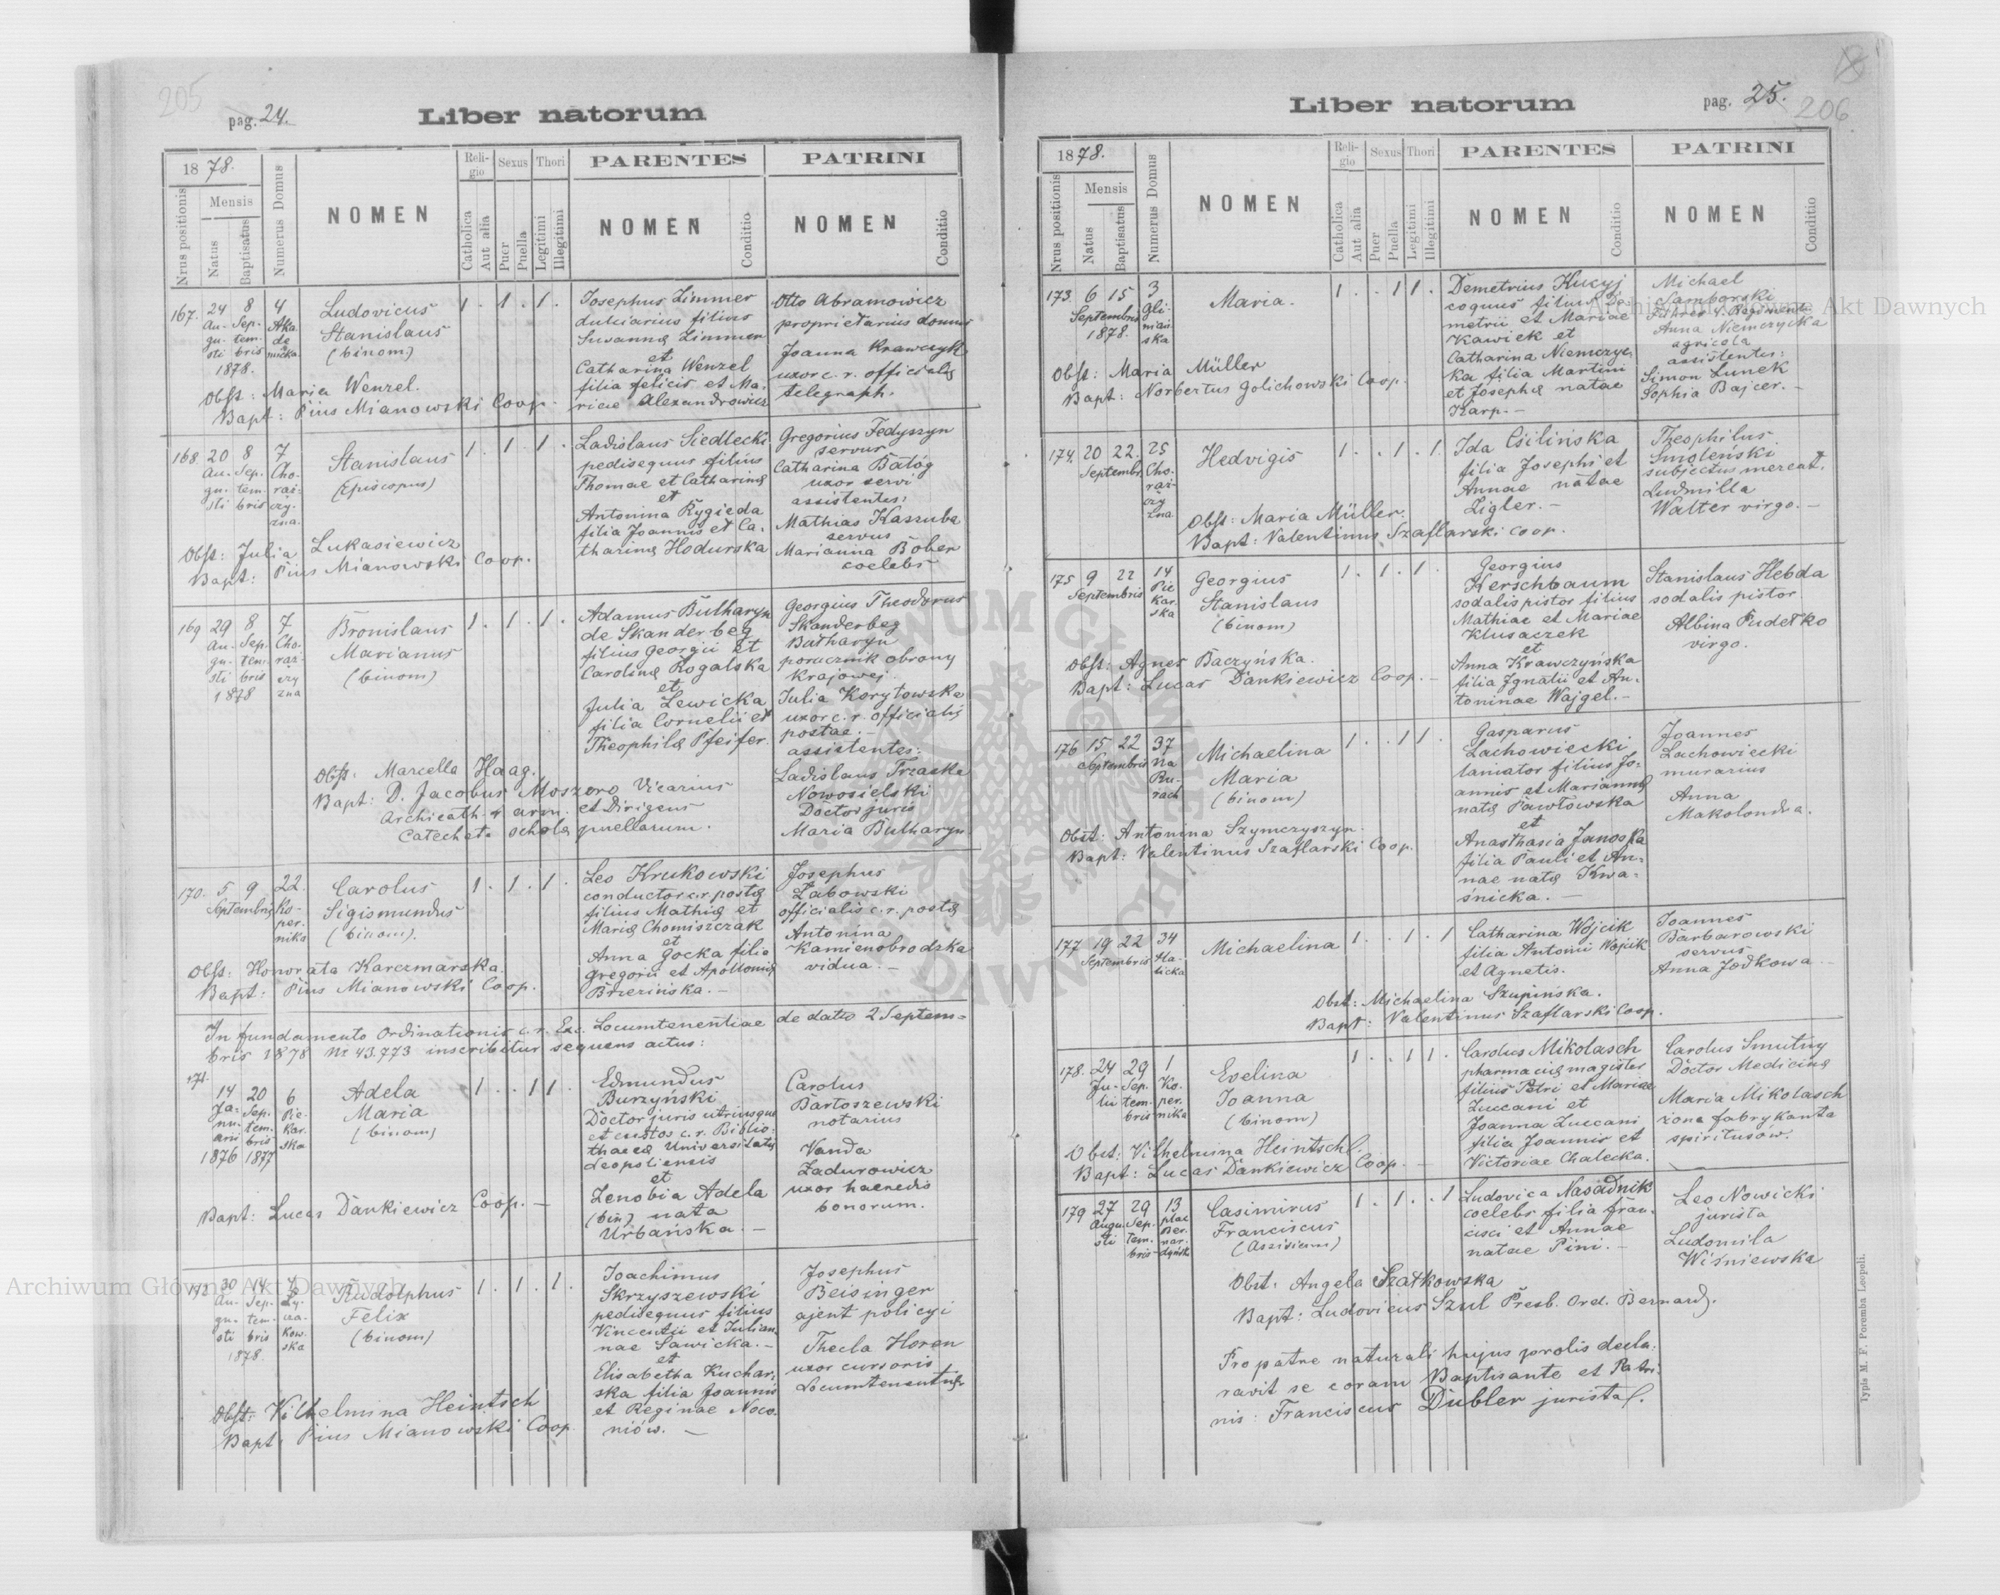 205
pag. 24.
Liber natorum
1878.
Nrus positionis
Mensis
Natus
Baptisatus
Numerus Domus
NOMEN
Religio
Catholica
Aut alia
Sexus
Puer
Puella
Thori
Legitimi
Illegitimi
PARENTES
NOMEN
Conditio
PATRINI
NOMEN
Conditio
167. 24 8 4
Au- Sep- Aka
gu- tem- de
sti bris micka
1878.
Ludovicus
Stanislaus
(binom)
1. 1. 1.
Josephus Zimmer
dulciarius filius
Susannę Zimmer
et
Catharina Wenzel
filia felicis et Ma-
riae Alexandrowicz
Otto Abramowicz
proprietarius domus
Joanna Krawczyk
uxor c. r. officialis
telegraph.
Obst: Maria Wenzel.
Bapt: Pius Mianowski Coop.
168. 20 8 7
Au- Sep- Cho-
gu- tem- raż-
sti bris czy-
zna.
Stanislaus
(Episcopus)
1. 1. 1.
Ladislaus Siedlecki
pedisequus filius
Thomae et Catharinę
et
Antonina Rygieda
filia Joannis et Ca-
tharinę Hodurska
Gregorius Fedyszyn
servus
Catharina Batóg
uxor servi
assistentes:
Mathias Kaszuba
servus
Marianna Bober
coelebs
Obst: Julia Lukasiewicz
Bapt: Pius Mianowski Coop.
169 29 8 7
Au- Sep. Cho-
gu- tem- raż
sti bris czy
1878 zna
Bronislaus
Marianus
(binom)
1. 1. 1.
Adamus Butharyn
de Skanderbeg
filius Georgii et
Carolinę Rogalska
et
Julia Lewicka
filia Cornelii et
Theophilę Pfeifer.
Georgius Theodorus
Skanderbeg
Butharyn
porucznik obrony
krajowej
Julia Korytowska
uxor c. r. officialis
postae.-
assistentes:
Ladislaus Trzaska
Nowosielski
Doctor juris
Maria Butharyn
Obst: Marcella Haag.
Bapt: D. Jacobus Moszoro Vicarius
Archicath. r. arm. et Dirigens
Catecheta scholę puellarum.
170. 5 9 22
Septembris Ko-
per-
nika
Carolus
Sigismundus
(binom).
1. 1. 1.
Leo Krukowski
conductor c. r. postę
filius Mathię et
Marię Chomiszczak
et
Anna Gocka filia
Gregorii et Apollonię
Brzezińska.-
Josephus
Żabowski
officialis c. r. postę
Antonina
Kamienobrodzka
vidua.-
Obst: Honorata Karczmarska.
Bapt: Pius Mianowski Coop.
In fundamento Ordinationis c. r. Exc. Locumtenentiae de dato 2 Septem-
bris 1878 Nr 43.773 inscribitur sequens actus:
171.
14 20 6
Ja- Sep. Pie-
nu- tem- kar-
arii bris ska
1876 1877
Adela
Maria
(binom)
1. . 1 1
Edmundus
Burzyński
Doctor juris utriusque
et custos c. r. Biblio-
thaecę Universitatis
Leopoliensis
et
Zenobia Adela
(bin) nata
Urbańska.-
Carolus
Bartoszewski
notarius
Vanda
Zadurowicz
uxor haeredis
bonorum.
Bapt: Lucas Dankiewicz Coop.-
172 30 14 7
Au- Sep- Ły-
gu- tem- cza-
sti bris kow-
1878. ska
Rudolphus
Felix
(binom)
1. 1. 1.
Joachimus
Skrzyszewski
pedisequus filius
Vincentii et Julian-
nae Sawicka.-
et
Elisabetha Kuchar-
ska filia Joannis
et Reginae Noco-
niów.-
Josephus
Beisinger
ajent policyi
Thecla Horen
uxor cursoris
Locumtenentiae
Obst: Vilhelmina Heintsch
Bapt: Pius Mianowski Coop.
pag. 25.
206
Liber natorum
1878.
Nrus positionis
Mensis
Natus
Baptisatus
Numerus Domus
NOMEN
Religio
Catholica
Aut alia
Sexus
Puer
Puella
Thori
Legitimi
Illegitimi
PARENTES
NOMEN
Conditio
PATRINI
NOMEN
Conditio
173. 6 15 3
Septembris Gli-
1878. niań-
ska
Maria.
1. . 1 1.
Demetrius Kucyj
coquus filius De-
metrii et Mariae
Kawick et
Catharina Niemczyc-
ka filia Martini
et Josephę natae
Karp.-
Michael
Samborski
Führer 9. Regiment.
Anna Niemczycka
agricola
assistentes:
Simon Lunek
Sophia Bajcer.-
Obst: Maria Müller
Bapt: Norbertus Golichowski Coop.
174. 20 22 25
Septembr. Cho-
raż-
czy
zna
Hedvigis
1. . 1. 1.
Ida Csilińska
filia Josephi et
Annae natae
Zigler.-
Theophilus
Smoleński
subjectus mercat.
Ludmilla
Walter virgo.-
Obst: Maria Müller.
Bapt: Valentinus Szaflarski Coop.
175 9 22 14
Septembris Pie
kar-
ska
Georgius
Stanislaus
(binom)
1. 1. 1.
Georgius
Kerschbaum
sodalis pistor filius
Mathiae et Mariae
Klusaczek
et
Anna Krawczyńska
filia Ignatii et An-
toninae Wajgel.-
Stanislaus Hebda
sodalis pistor
Albina Pudełko
virgo.
Obst: Agnes Baczyńska.
Bapt: Lucas Dankiewicz Coop.-
176 15 22 37
Septembris na
Ru-
rach
Michaelina
Maria
(binom)
1. . 1 1.
Gasparus
Lachowiecki
laniator filius Jo-
annis et Mariannę
natę Pawłowska
et
Anasthasia Janoska
filia Pauli et An-
nae natę Kwa-
śnicka.-
Joannes
Lachowiecki
murarius
Anna
Makolondra.
Obst: Antonina Szymczyszyn.
Bapt: Valentinus Szaflarski Coop.
177 19 22 34
Septembris Ha-
licka
Michaelina
1. . 1. 1
Catharina Wójcik
filia Antonii Wójcik
et Agnetis.
Joannes
Barbarowski
servus
Anna Jodkowa.-
Obst: Michaelina Szupińska.
Bapt: Valentinus Szaflarski Coop.
178. 24 29 1
Ju- Sep- Ko-
lii tem- per-
bris nika
Evelina
Joanna
(binom)
1. . 1 1.
Carolus Mikolasch
pharmacię magister
filius Petri et Mariae
Zuccani et
Joanna Zuccani
filia Joannis et
Victoriae Chalecka.
Carolus Smutny
Doctor Medicinę
Maria Mikolasch
żona fabrykanta
spirytusów.
Obst: Vilhelmina Heintschl
Bapt: Lucas Dankiewicz Coop.-
179 27 29 13
Augu- Sep- plac
sti tem- Ber-
bris nar-
dyński
Casimirus
Franciscus
(Assisium)
1. 1. . 1
Ludovica Nasadnik
coelebs filia Fran-
cisci et Annae
natae Pini.-
Leo Nowicki
jurista
Ludomila
Wiśniewska
Obst: Angela Szatkowska
Bapt: Ludovicus Szul Presb. Ord. Bernard.
Pro patre naturali hujus prolis decla-
ravit se coram Baptisante et Patri-
nis: Franciscus Dubler jurista.
Typis M. F. Poremba Leopoli.
Archiwum Główne Akt Dawnych
Archiwum Główne Akt Dawnych